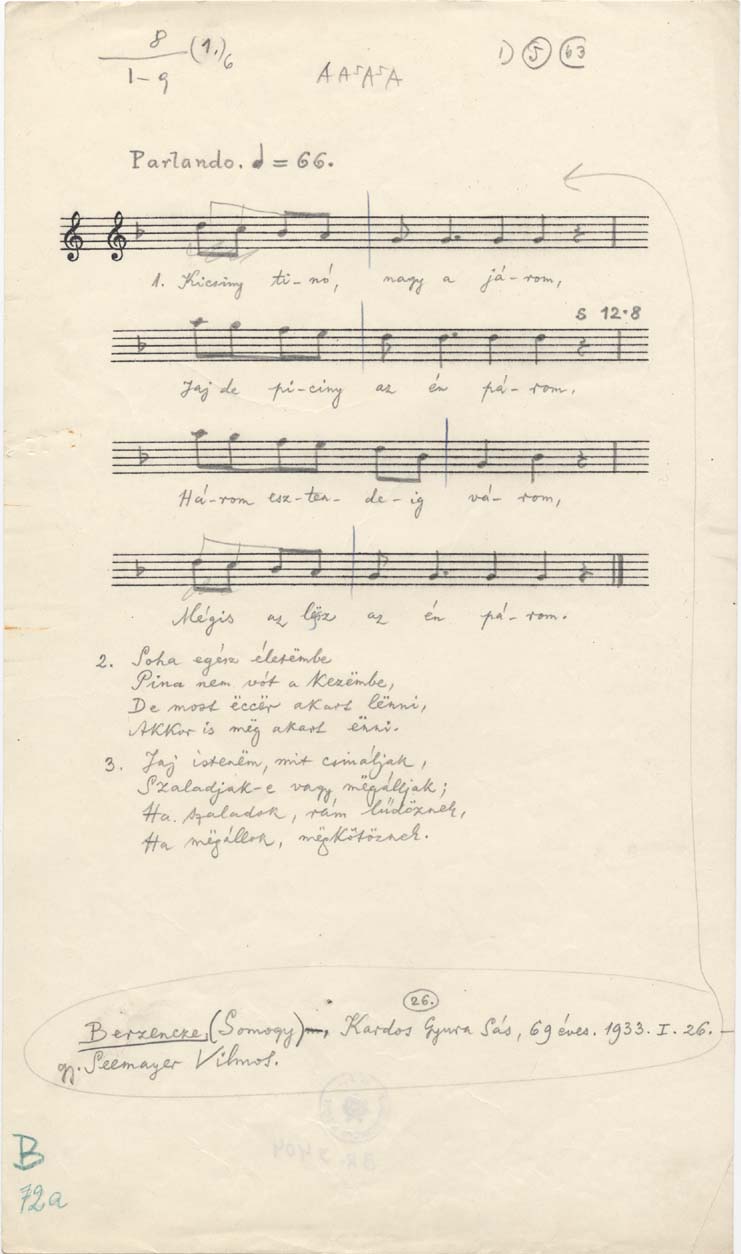 8 (1.)6
1-9
A A⁵A⁵A
1) 5 63
Parlando. = 66.
1. Kicsiny ti-nó, nagy a já-rom,
S 12·8
Jaj de pi-ciny az én pá-rom.
Há-rom esz-ten-de-ig vá-rom,
Mégis az lësz az én pá-rom.
2. Soha egész életëmbe
Pina nem vót a kezëmbe,
De most ëccër akart lënni,
Akkor is mëg akart ënni.
3. Jaj istenëm, mit csináljak,
Szaladjak-e vagy mëgálljak;
Ha szaladok, rám lüdöznek,
Ha mëgállok, mëgkötöznek.
26.
Berzencze, (Somogy), Kardos Gyura Sás, 69 éves. 1933. I. 26.
gy. Seemayer Vilmos.
B
72a